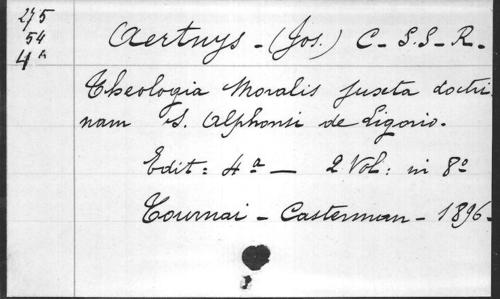 275
54
4ᵃ
Aertnys - (Jos.) C. S. S. R.
Theologia Moralis juxta doctri
nam S. Alphonsi de Ligorio.
Edit: 4ª — 2 Vol: in 8º
Tournai - Casterman - 1896.